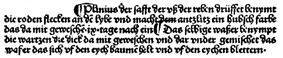 ¶ Plinius der safft der vß der reben drüsset benympt
die roden flecken an dē lybe vnd macht dem antzlütz ein hubsch farbe
das da mit geweschē ·ix·tage nach ein ¶ Das selbige wasser benympt
die wartzen die dick da mit geweschen vnd dar vnder gemischet das
wasser das sich vff den eych baumē helt vnd vff den eychen blettern·